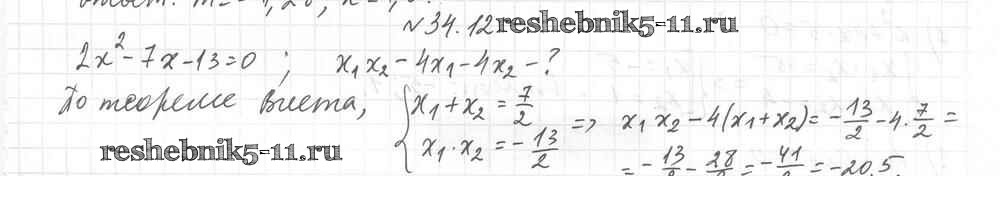 №34.12 reshebnik5-11.ru
2x² - 7x - 13 = 0 ; x₁x₂ - 4x₁ - 4x₂ - ?
По теореме Виета, { x₁ + x₂ = 7/2
x₁ · x₂ = - 13/2 => x₁x₂ - 4(x₁ + x₂) = - 13/2 - 4 · 7/2 =
reshebnik5-11.ru
= - 13/2 - 28/2 = - 41/2 = -20,5.